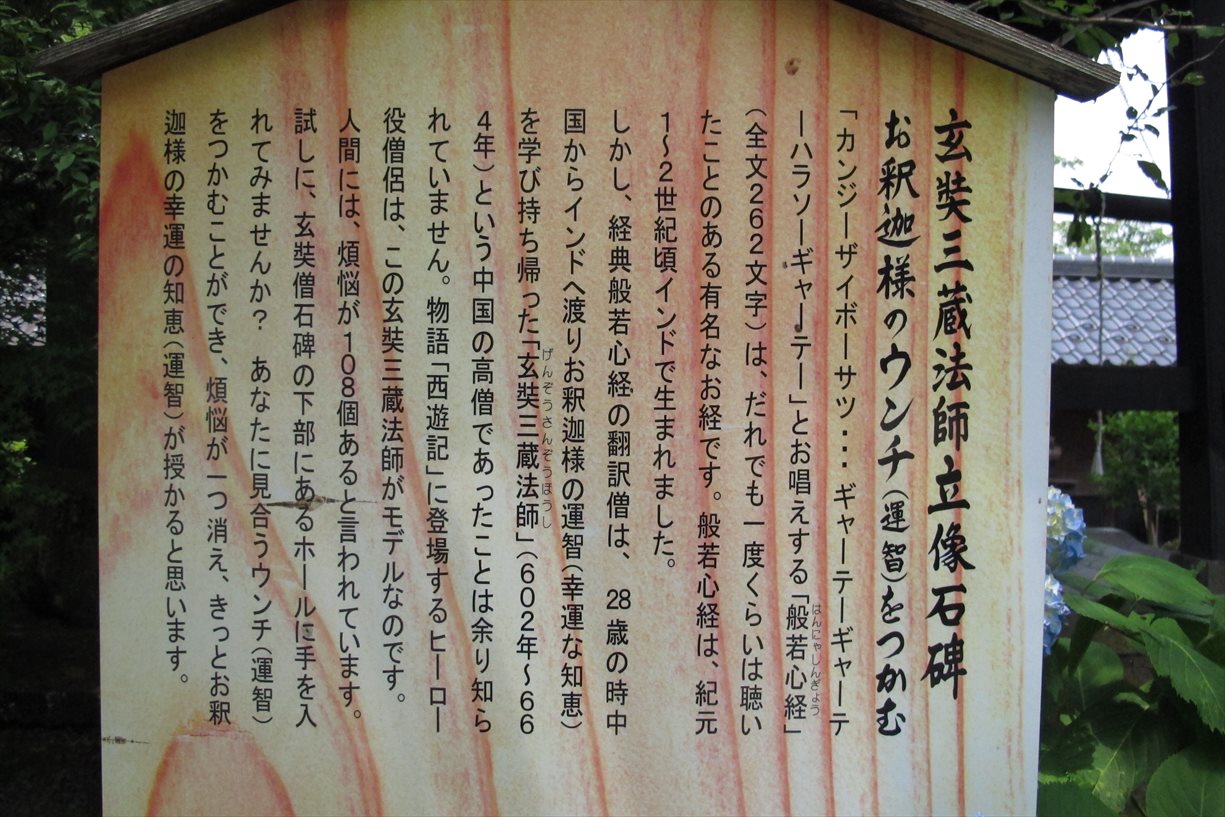 玄奘三蔵法師立像石碑
お釈迦様のウンチ(運智)をつかむ
「カンジーザイボーサツ・・・ギャーテーギャーテ
ーハラソーギャーテー」とお唱えする「般若心経」
はんにゃしんぎょう
(全文262文字)は、だれでも一度くらいは聴い
たことのある有名なお経です。般若心経は、紀元
1〜2世紀頃インドで生まれました。
しかし、経典般若心経の翻訳僧は、28歳の時中
国からインドへ渡りお釈迦様の運智(幸運な知恵)
を学び持ち帰った「玄奘三蔵法師」(602年〜66
げんぞうさんぞうほうし
4年)という中国の高僧であったことは余り知ら
れていません。物語「西遊記」に登場するヒーロー
役僧侶は、この玄奘三蔵法師がモデルなのです。
人間には、煩悩が108個あると言われています。
試しに、玄奘僧石碑の下部にあるホールに手を入
れてみませんか? あなたに見合うウンチ(運智)
をつかむことができ、煩悩が一つ消え、きっとお釈
迦様の幸運の知恵(運智)が授かると思います。